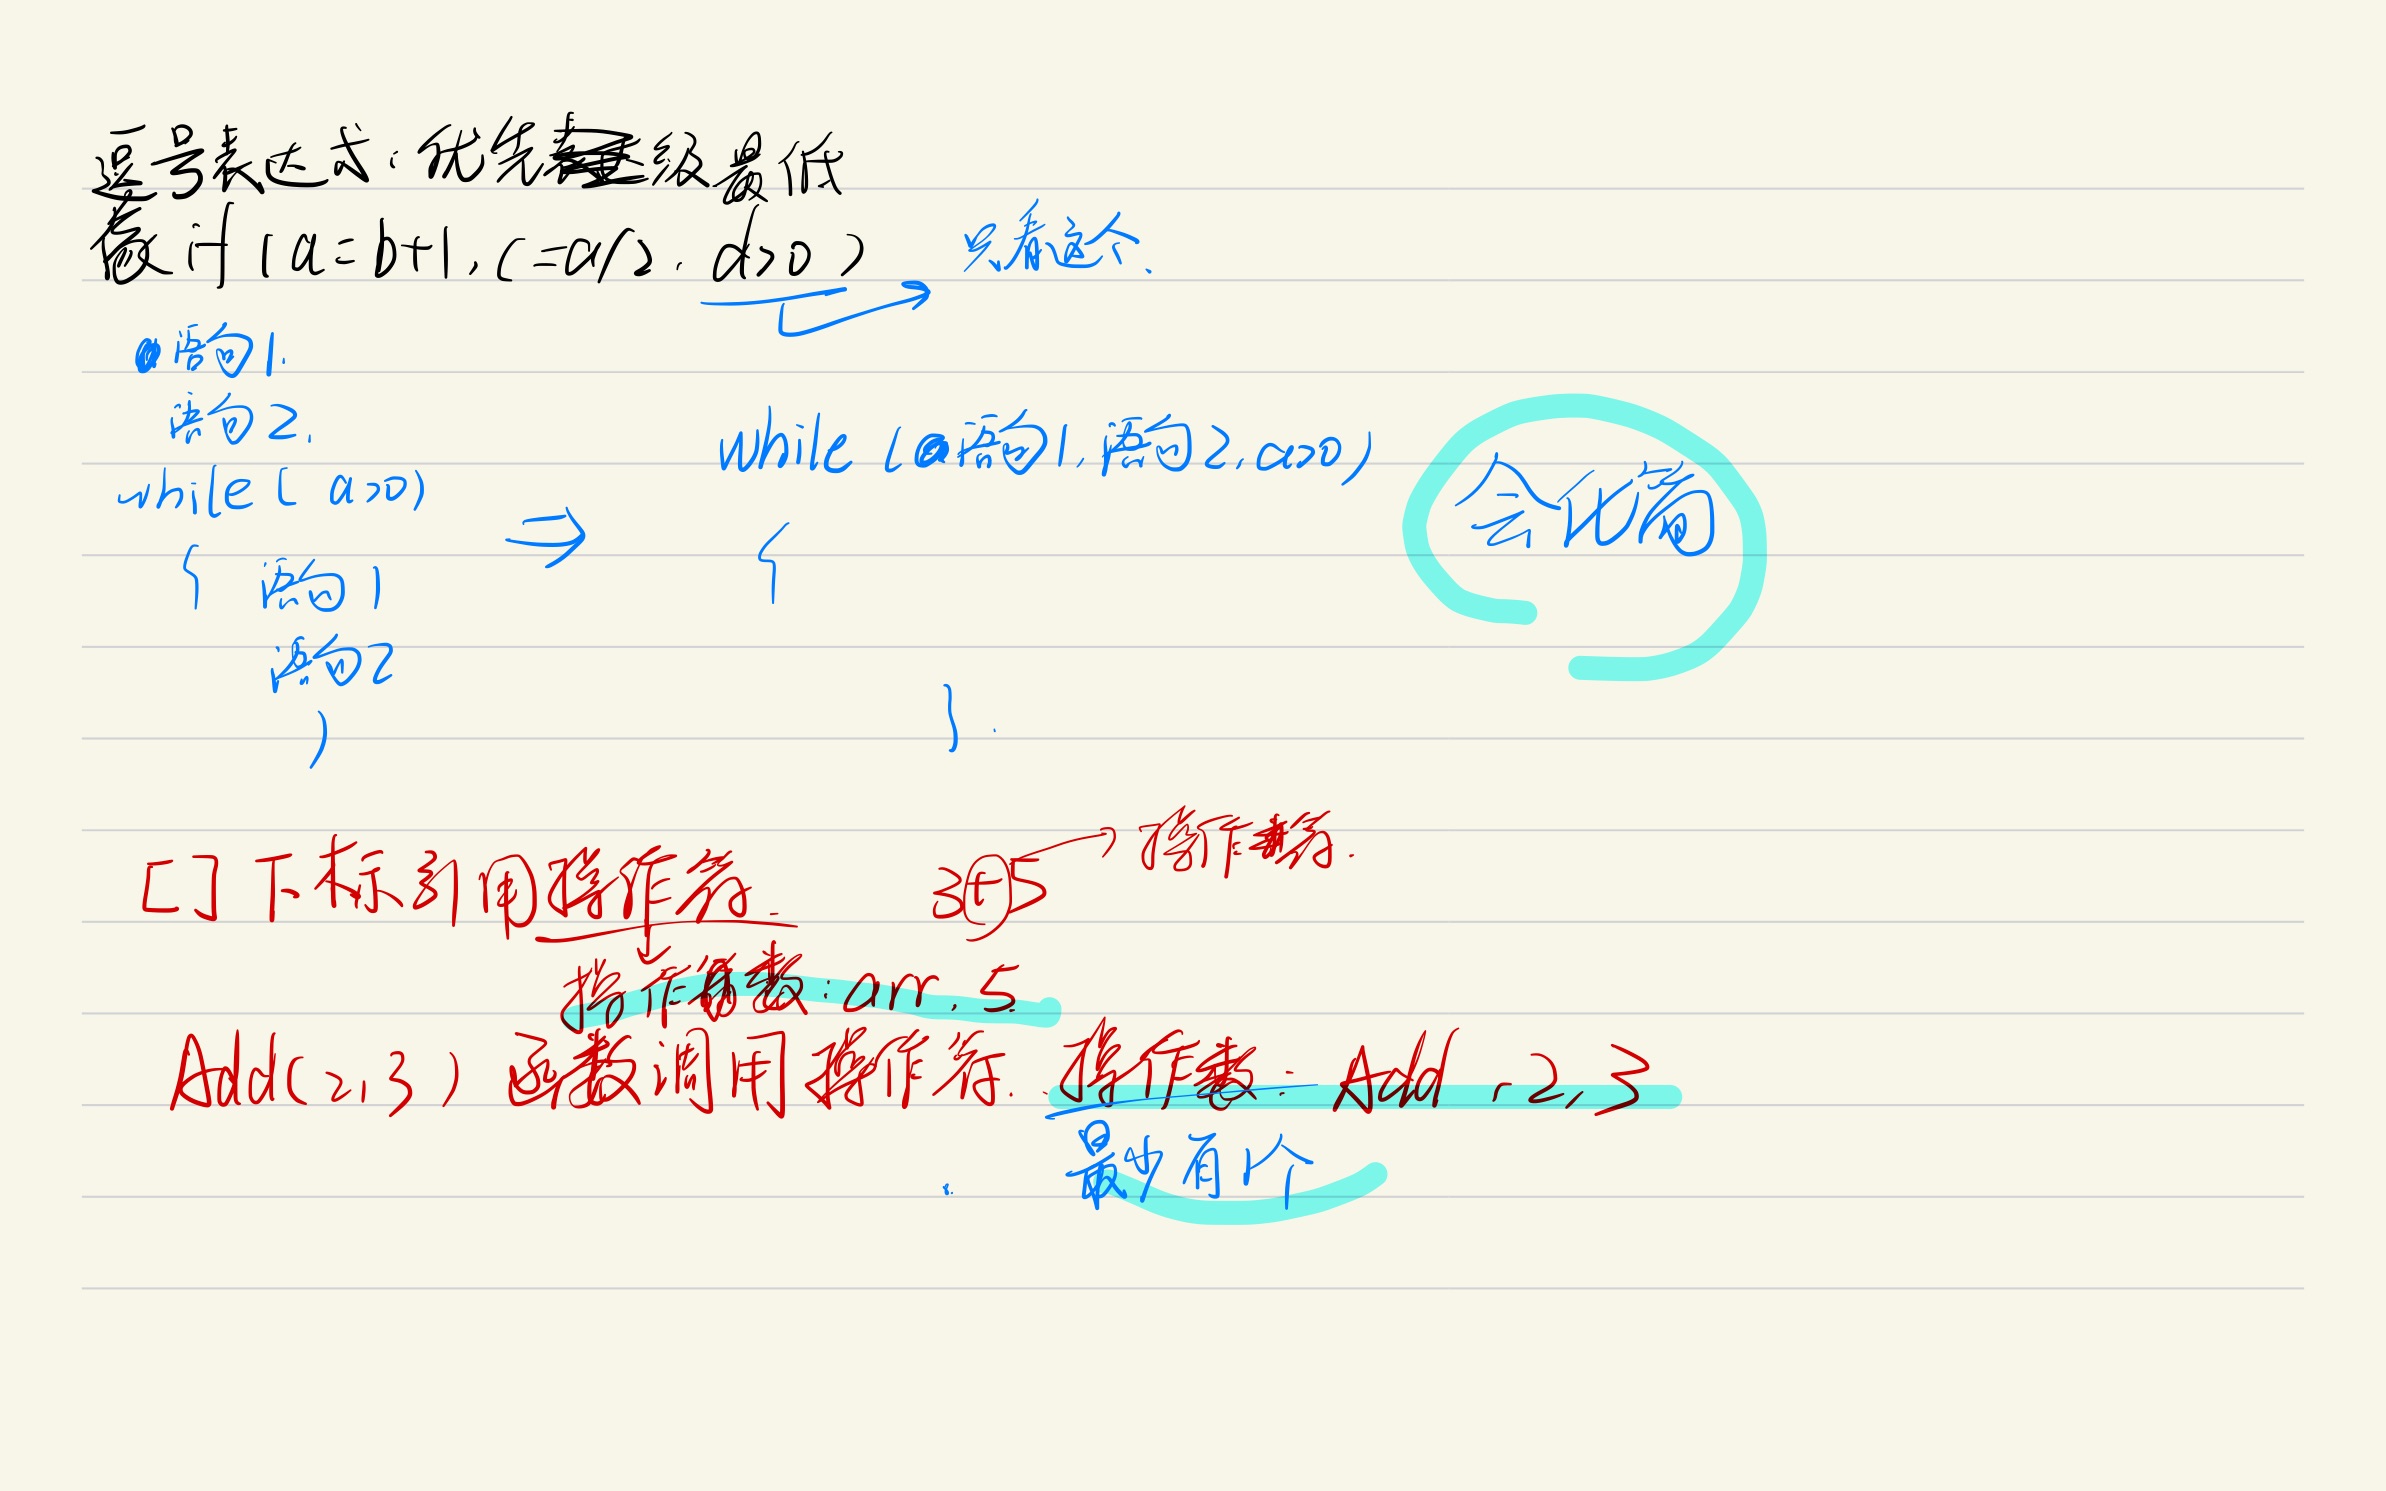 逗号表达式：优先级最低
像 if (a=b+1, c=a/2, d>0) 只看这个.
语句1.
语句2.
while (a>0)
{ 语句1
语句2
}
⇒
while (语句1, 语句2, a>0)
{
}.
会化简
[] 下标引用操作符. 3+5 → 操作符.
操作数: arr, 5
Add(2,3) 函数调用操作符. 操作数: Add, 2, 3
最少有1个